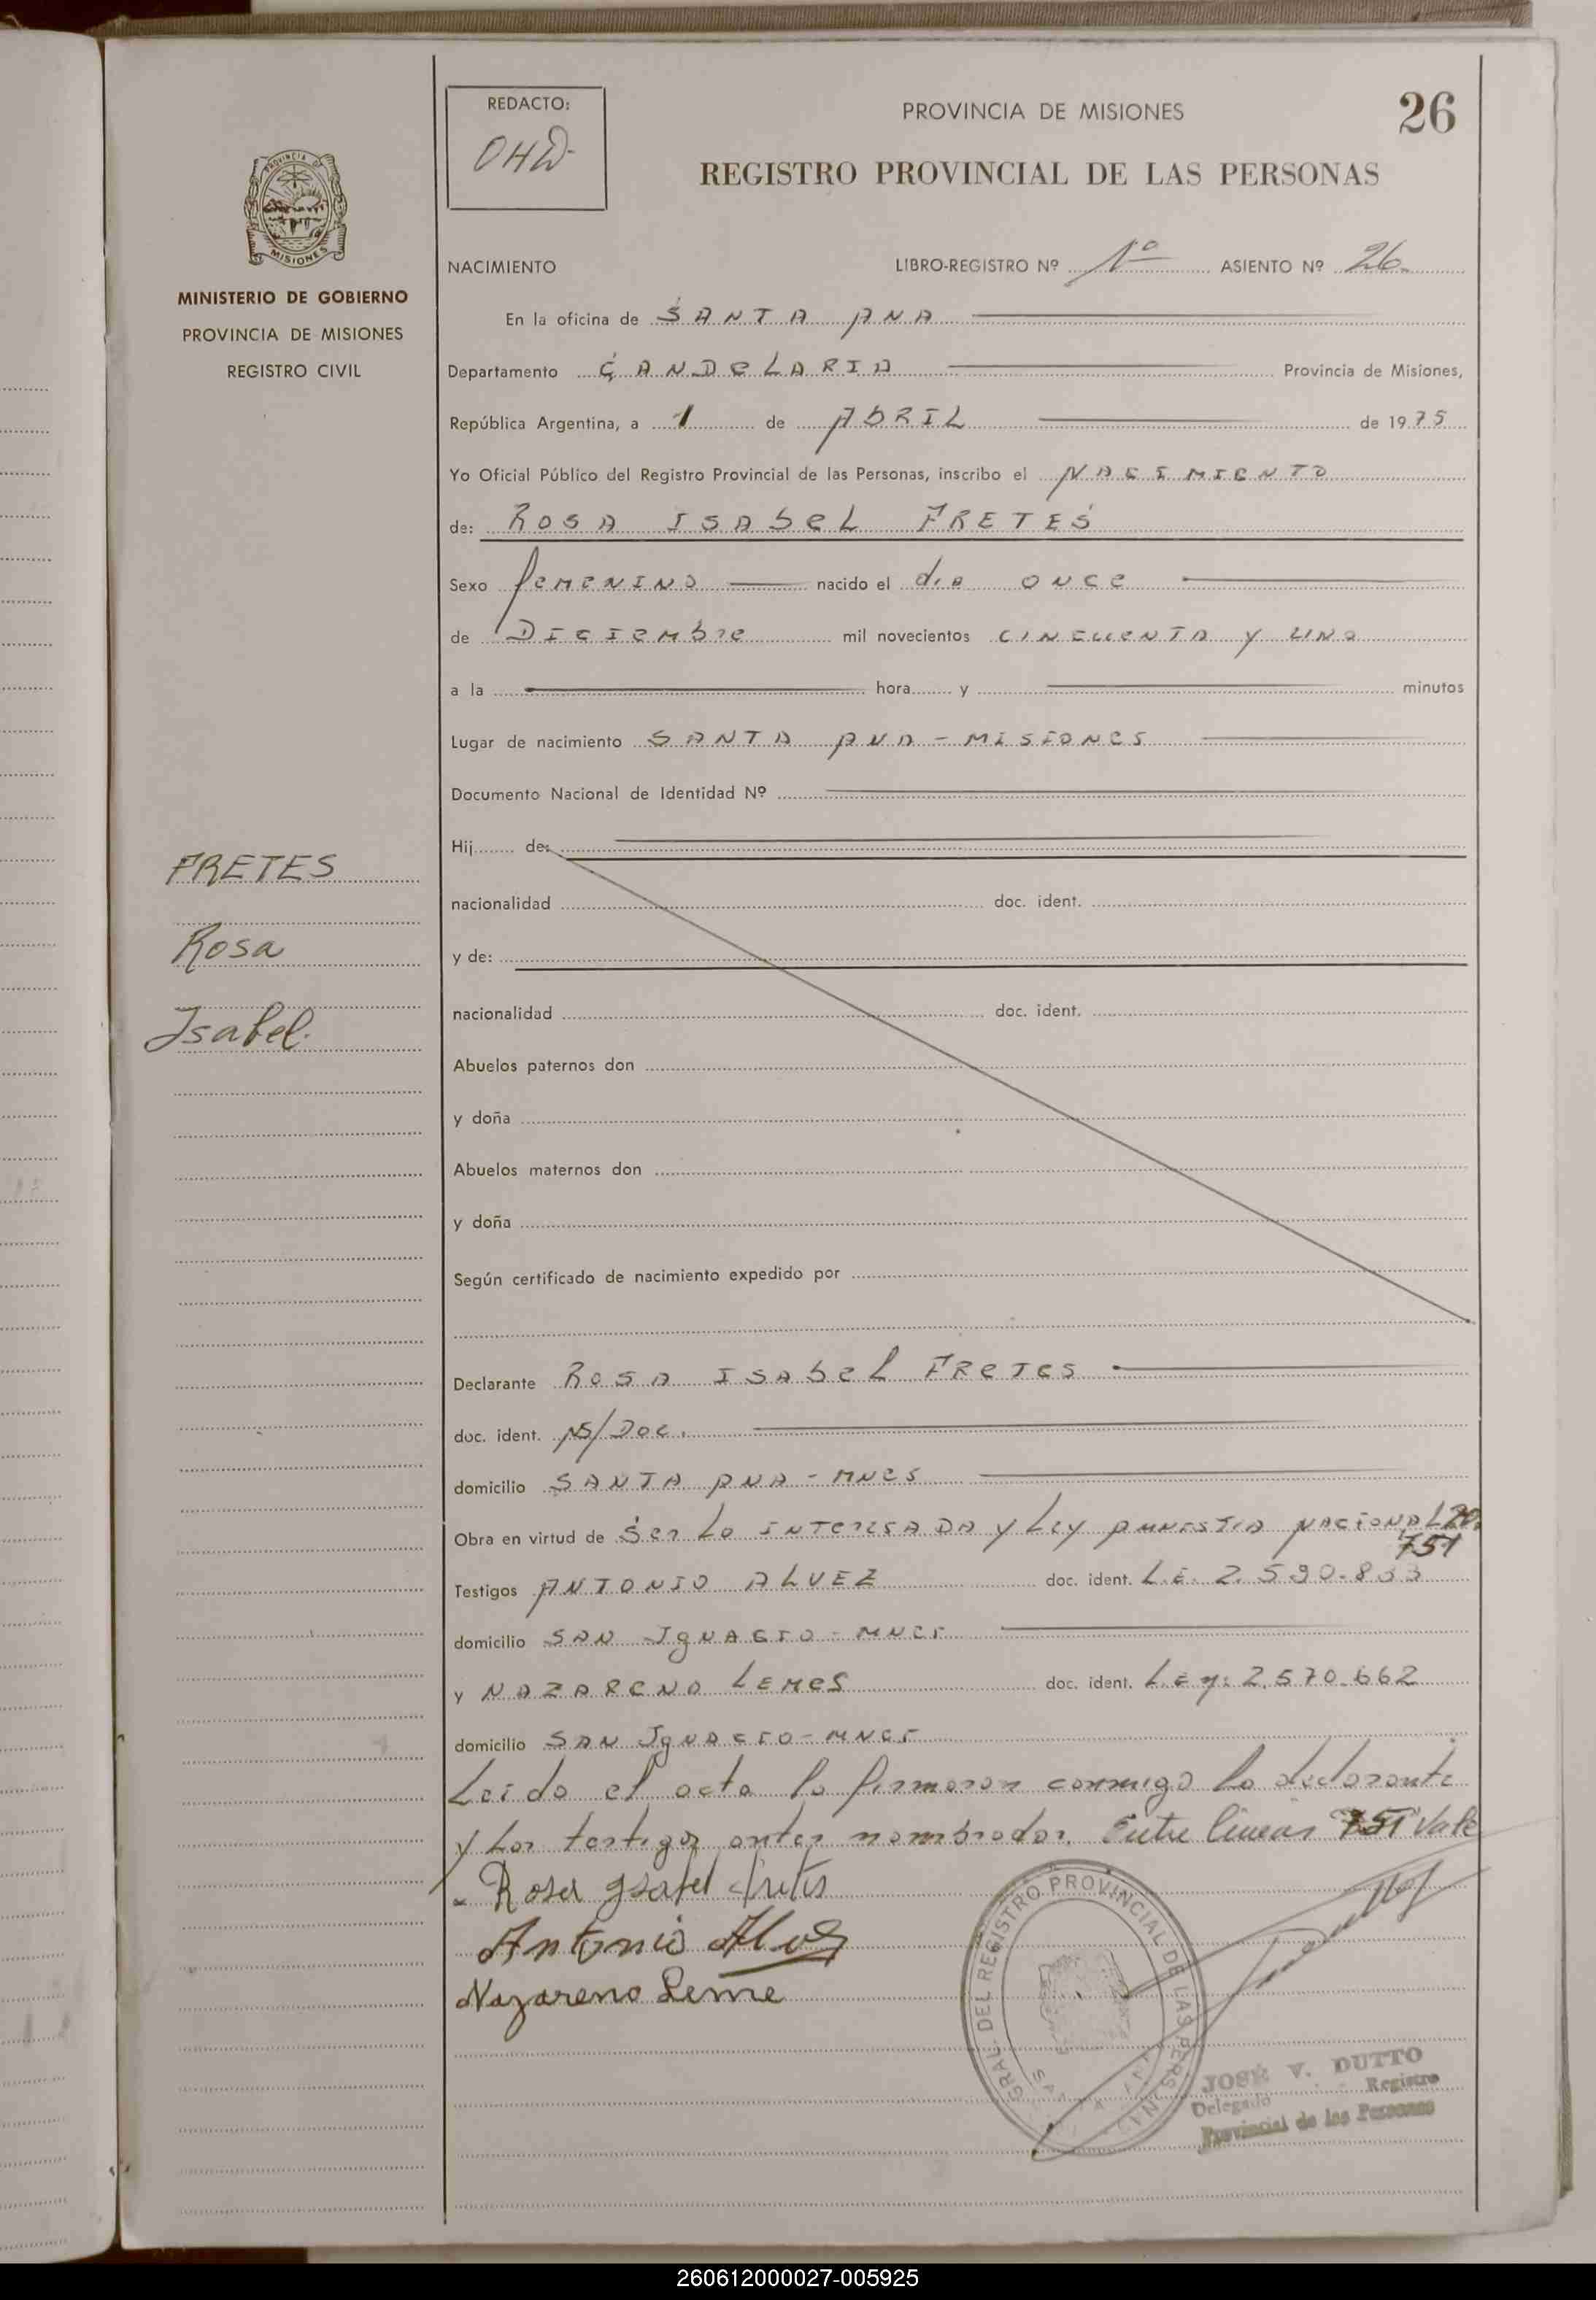 REDACTO:
OHD
PROVINCIA DE MISIONES
26
REGISTRO PROVINCIAL DE LAS PERSONAS
PROVINCIA DE
MISIONES
MINISTERIO DE GOBIERNO
PROVINCIA DE MISIONES
REGISTRO CIVIL
NACIMIENTO LIBRO-REGISTRO Nº 1º ASIENTO Nº 26
En la oficina de SANTA ANA
Departamento CANDeLARIA Provincia de Misiones,
República Argentina, a 1 de AbRIL de 1975
Yo Oficial Público del Registro Provincial de las Personas, inscribo el NACIMIENTO
de: ROSA ISAbeL FRETES
Sexo femeNINO nacido el día ONCe
de DICIembre mil novecientos CINCUENTA y UNO
a la hora y minutos
Lugar de nacimiento SANTA ANA - MISIONES
Documento Nacional de Identidad Nº
Hij de:
nacionalidad doc. ident.
y de:
nacionalidad doc. ident.
Abuelos paternos don
y doña
Abuelos maternos don
y doña
Según certificado de nacimiento expedido por
FRETES
Rosa
Isabel.
Declarante ROSA ISAbeL FReTes
doc. ident. N/DOC.
domicilio SANTA ANA - MNES
Obra en virtud de Ser La INTERESADA y Ley AMNESTIA NACIONAL 20.
751
Testigos ANTONIO ALVEZ doc. ident. L.E. 2.590.833
domicilio SAN IgNACIO - MNES
y NAZARENO LEMES doc. ident. L.E. 2.570.662
domicilio SAN IgNACIO - MNES
Leido el acta la firmaron conmigo la declarante
y los testigos antes nombrados. Entre lineas 751 Vale
Rosa Isabel Fretes
Antonio Alvez
Nazareno Leme
GRAL. DEL REGISTRO PROVINCIAL DE LAS PERSONAS
JOSÉ V. DUTTO
Delegado Registro
Provincial de las Personas
260612000027-005925